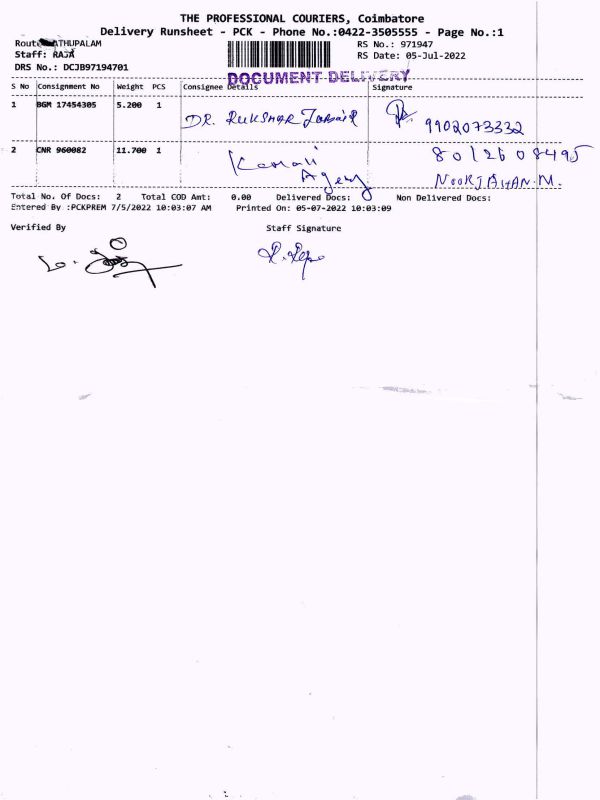 THE PROFESSIONAL COURIERS, Coimbatore
Delivery Runsheet - PCK - Phone No.:0422-3505555 - Page No.:1
ATHUPALAM
RS No.: 971947
Staff: RAJA
RS Date: 05-Jul-2022
DRS No.: DCJB97194701
DOCUMENT DELIVERY
S No Consignment No Weight PCS Consignee Details Signature
1 BGM 17454305 5.200 1 DR. RUKSHAR 9902073332
2 CNR 960082 11.700 1 8012608495
Agency NOORJAHAN.M.
Total No. Of Docs: 2 Total COD Amt: 0.00 Delivered Docs: Non Delivered Docs:
Entered By :PCKPREM 7/5/2022 10:03:07 AM Printed On: 05-07-2022 10:03:09
Verified By Staff Signature